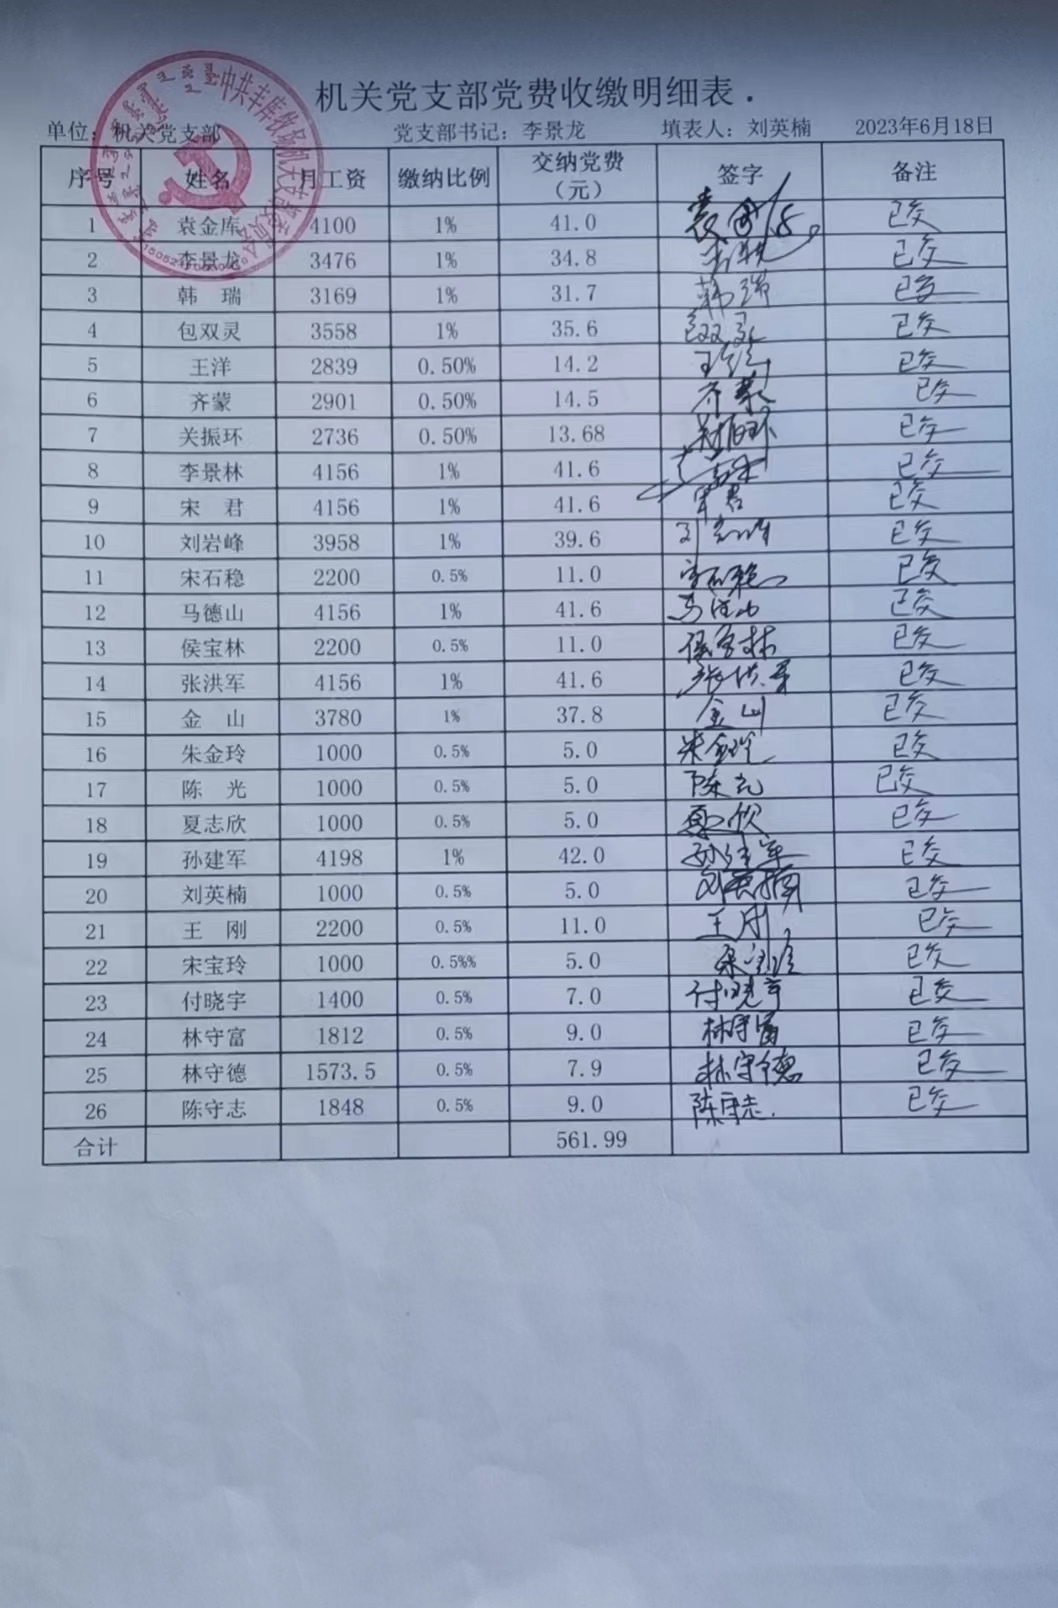 机关党支部党费收缴明细表.
单位：机关党支部 党支部书记：李景龙 填表人：刘英楠 2023年6月18日
序号 姓名 月工资 缴纳比例 交纳党费（元） 签字 备注
1 袁金库 4100 1% 41.0 已交
2 李景龙 3476 1% 34.8 已交
3 韩 瑞 3169 1% 31.7 韩瑞 已交
4 包双灵 3558 1% 35.6 包双灵 已交
5 王洋 2839 0.50% 14.2 已交
6 齐蒙 2901 0.50% 14.5 齐蒙 已交
7 关振环 2736 0.50% 13.68 已交
8 李景林 4156 1% 41.6 已交
9 宋 君 4156 1% 41.6 宋君 已交
10 刘岩峰 3958 1% 39.6 刘岩峰 已交
11 宋石稳 2200 0.5% 11.0 宋石稳 已交
12 马德山 4156 1% 41.6 马德山 已交
13 侯宝林 2200 0.5% 11.0 侯宝林 已交
14 张洪军 4156 1% 41.6 张洪军 已交
15 金 山 3780 1% 37.8 金山 已交
16 朱金玲 1000 0.5% 5.0 朱金玲 已交
17 陈 光 1000 0.5% 5.0 陈光 已交
18 夏志欣 1000 0.5% 5.0 已交
19 孙建军 4198 1% 42.0 孙建军 已交
20 刘英楠 1000 0.5% 5.0 刘英楠 已交
21 王 刚 2200 0.5% 11.0 王刚 已交
22 宋宝玲 1000 0.5%% 5.0 宋宝玲 已交
23 付晓宇 1400 0.5% 7.0 付晓宇 已交
24 林守富 1812 0.5% 9.0 林守富 已交
25 林守德 1573.5 0.5% 7.9 林守德 已交
26 陈守志 1848 0.5% 9.0 陈守志. 已交
合计 561.99